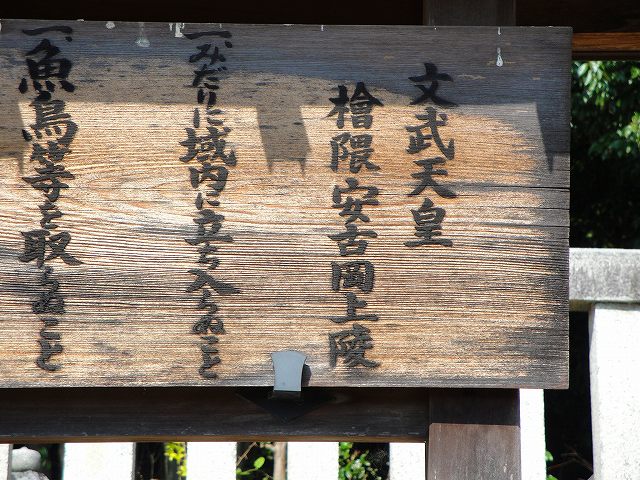 文武天皇
檜隈安古岡上陵
一、みだりに域内に立ち入らぬこと
一、魚鳥等を取らぬこと